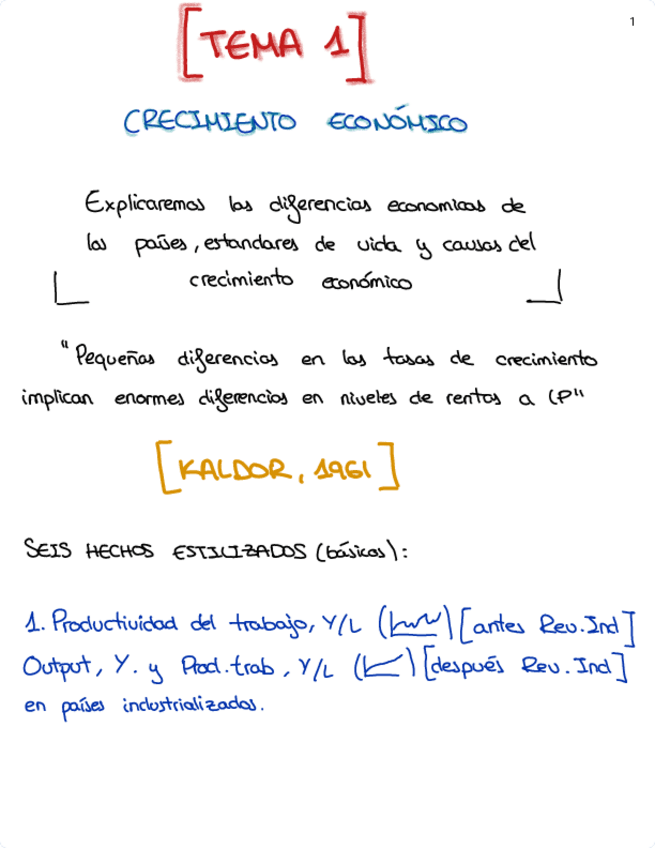 1
[TEMA 1]
CRECIMIENTO ECONÓMICO
Explicaremos las diferencias economicas de
los países, estandares de vida y causas del
crecimiento económico
"Pequeñas diferencias en las tasas de crecimiento
implican enormes diferencias en niveles de rentas a LP"
[KALDOR, 1961]
SEIS HECHOS ESTILIZADOS (básicos):
1. Productividad del trabajo, Y/L ( ) [antes Rev. Ind]
Output, Y. y Prod. trab, Y/L ( ) [después Rev. Ind]
en países industrializados.